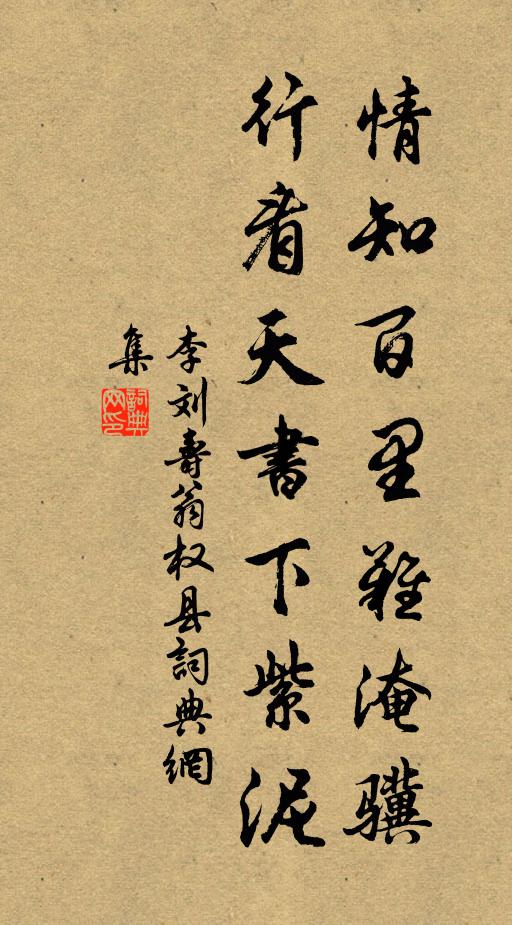 情知百里难淹骥
行看天书下紫泥
李刘寿翁权县詞典網
集
詞典網印